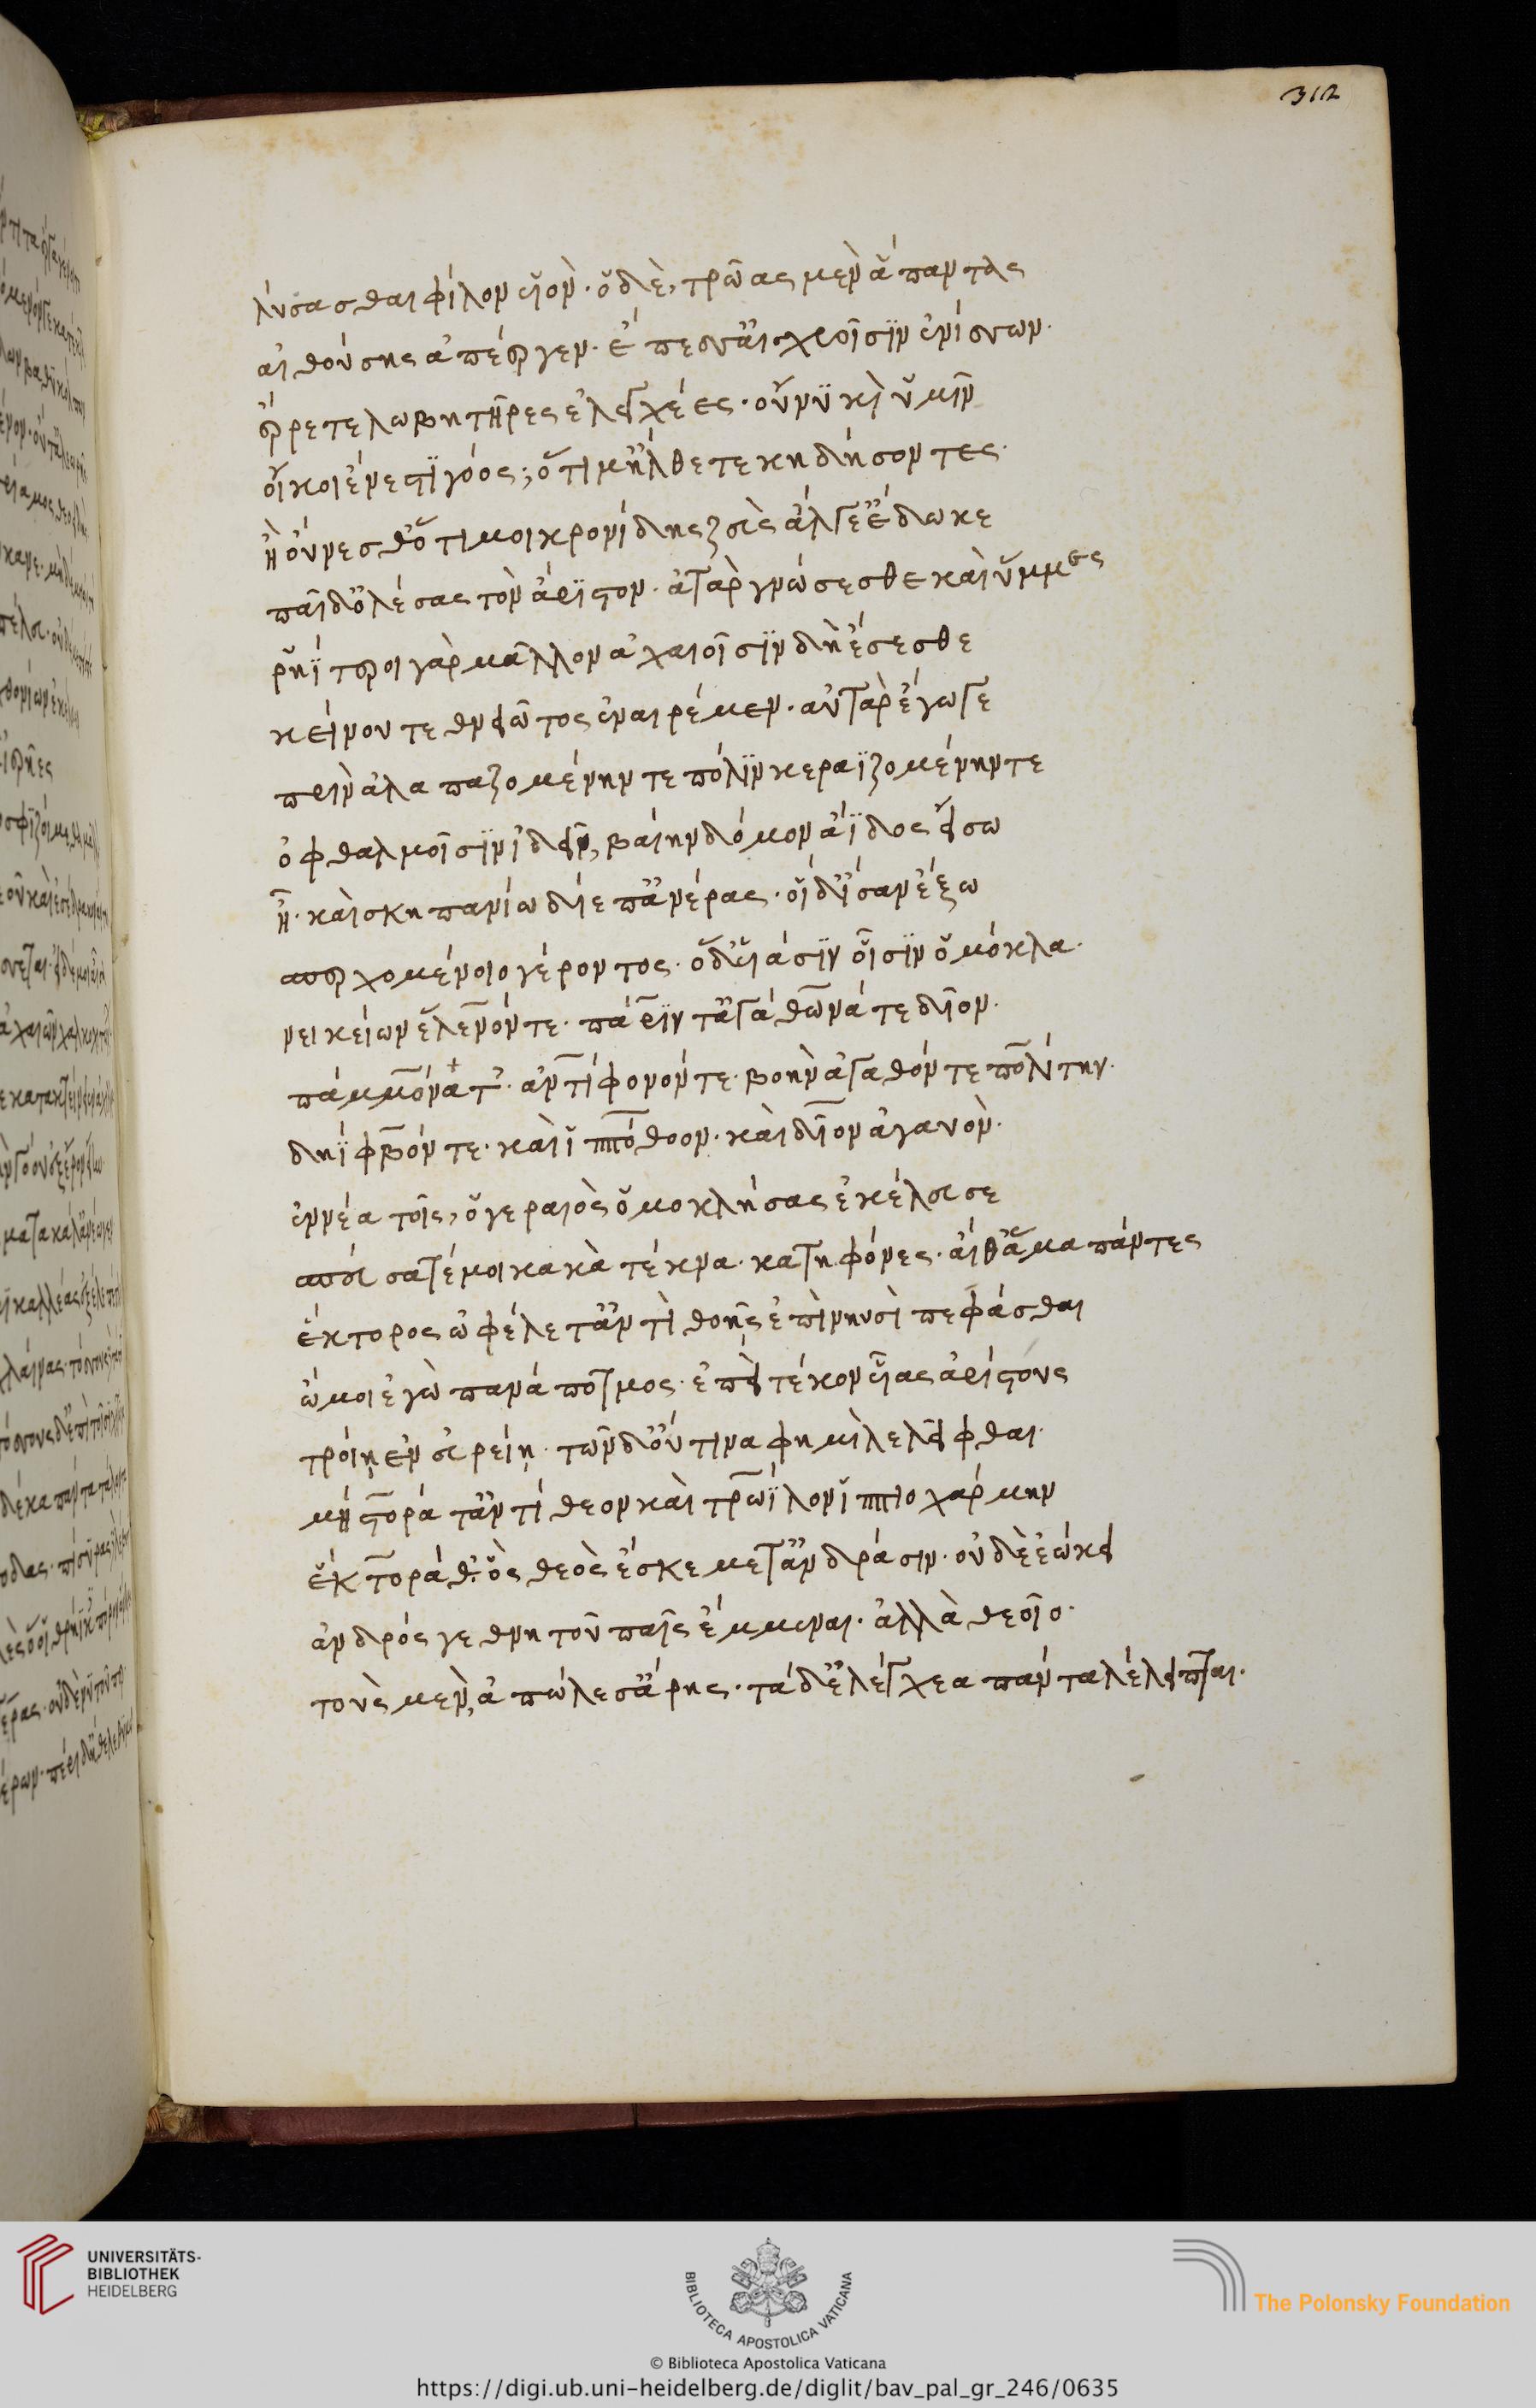 312
λύσασθαι φίλον υἱόν· ὁ δὲ, τρῶας μὲν ἅπαντας
αἰθούσης ἀπέεργεν· ἔπεσσ' αἰσχροῖσϊν ἐνίσσων·
ἔρρετε λωβητῆρες ἐλεγχέες· οὔ νϋ κὶ ὑμῖν
οἴκοι ἔνεστϊ γόος; ὅτι μ' ἤλθετε κηδήσοντες·
ἢ οὔνεσθ' ὅτι μοι κρονίδης ζεὺς ἄλγε' ἔδωκε
παῖδ' ὀλέσας τὸν ἄριστον· ἀτὰρ γνώσεσθε καὶ ὔμμες
ῥηΐτεροι γὰρ μᾶλλον ἀχαιοῖσϊν δὴ ἔσεσθε
κείνου τεθνειῶτος ἐναιρέμεν· αὐτὰρ ἔγωγε
πρὶν ἀλαπαζομένην τε πόλϊν κεραϊζομένην τε
ὀφθαλμοῖσϊν ἰδεῖν, βαίην δόμον ἄϊδος εἴσω
ἦ· καὶ σκηπανίω δίεπ' ἀνέρας· οἱ δ' ἴσαν ἔξω
σπερχομένοιο γέροντος· ὁ δ' υἱάσϊν οἷσϊν ὁμόκλα·
νεικείων ἕλενόν τε· πάρϊν τ' ἀγάθωνά τε δῖον·
πάμμονά τ'· ἀντίφονόν τε· βοὴν ἀγαθόν τε πολίτην·
δηΐφοβόν τε· καὶ ἱππόθοον· καὶ δῖον ἀγανόν·
ἐννέα τοῖς, ὁ γεραιὸς ὁμοκλήσας ἐκέλευσε
σπεύσατέ μοι κακὰ τέκνα· κατηφόνες· αἴθ' ἅμα πάντες
ἕκτορος ὠφέλετ' ἀντὶ θοῇς ἐπὶ νηυσὶ πεφάσθαι
ὤμοι ἐγὼ πανάποτμος· ἐπεὶ τέκον υἷας ἀρίστους
τροίῃ ἐν εὐρείῃ· τῶν δ' οὔτινα φημὶ λελεῖφθαι·
μήστορά τ' ἀντίθεον καὶ τρωΐλον ἱππιοχάρμην
ἕκτορά θ'· ὃς θεὸς ἔσκε μετ' ἀνδράσιν· οὐδὲ ἐώκει
ἀνδρός γε θνητοῦ παῖς ἔμμεναι· ἀλλὰ θεοῖο·
τοὺς μὲν, ἀπώλεσ' ἄρης· τὰ δ' ἐλέγχεα πάντα λέλειπται·
UNIVERSITÄTS-
BIBLIOTHEK
HEIDELBERG
BIBLIOTECA APOSTOLICA VATICANA
The Polonsky Foundation
© Biblioteca Apostolica Vaticana
https://digi.ub.uni-heidelberg.de/diglit/bav_pal_gr_246/0635